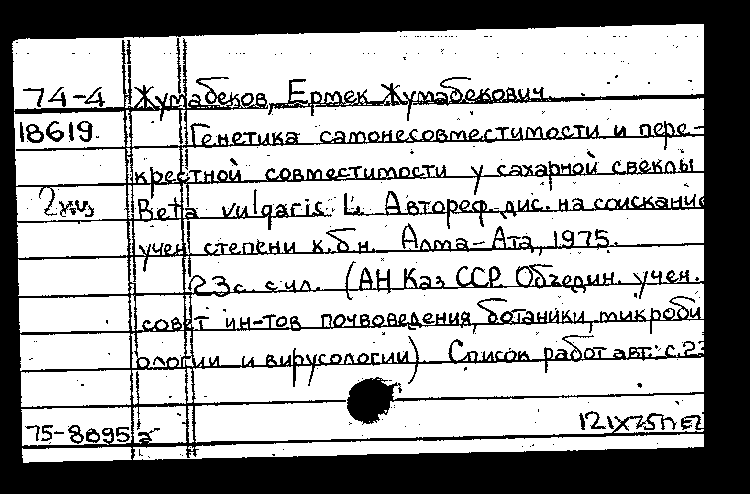 74-4 Жумабеков, Ермек Жумабекович.
18619. Генетика самонесовместимости и пере-
крестной совместимости у сахарной свеклы
2 экз Beta vulgaris L. Автореф. дис. на соискание
учен степени к.б.н. Алма-Ата, 1975.
23с. с ил. (АН Каз ССР. Объедин. учен.
совет ин-тов почвоведения, ботаники, микроби
ологии и вирусологии). Список работ авт.: с.23
75-8895